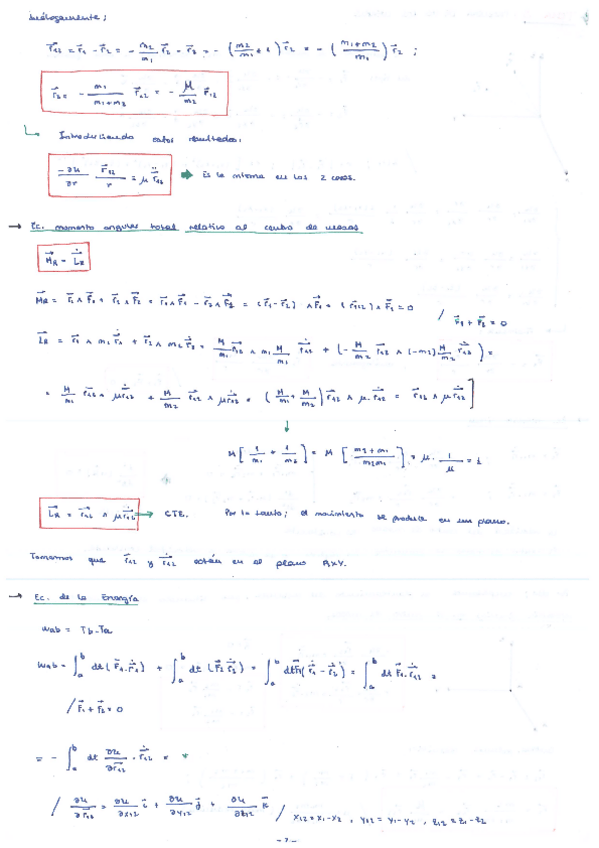 Análogamente;
r⃗12 = r⃗1 - r⃗2 = - m2/m1 r⃗2 - r⃗2 = - (m2/m1 + 1) r⃗2 = - (m1+m2/m1) r⃗2 ;
r⃗2 = - m1/m1+m2 r⃗12 = - μ/m2 r⃗12
Introduciendo estos resultados:
-∂u/∂r r⃗12/r = μ r⃗̈12 → Es la misma en los 2 casos.
→ Ec. momento angular total relativo al centro de masas
M⃗R = L⃗̇R
M⃗R = r⃗1 ∧ F⃗1 + r⃗2 ∧ F⃗2 = r⃗1 ∧ F⃗1 - r⃗2 ∧ F⃗1 = (r⃗1 - r⃗2) ∧ F⃗1 = (r⃗12) ∧ F⃗1 = 0 / F⃗1 + F⃗2 = 0
L⃗R = r⃗1 ∧ m1 r⃗̇1 + r⃗2 ∧ m2 r⃗̇2 = μ/m1 r⃗12 ∧ m1 μ/m1 r⃗̇12 + (- μ/m2 r⃗12 ∧ (-m2) μ/m2 r⃗̇12) =
= μ/m1 r⃗12 ∧ μ r⃗̇12 + μ/m2 r⃗12 ∧ μ r⃗̇12 = (μ/m1 + μ/m2) r⃗12 ∧ μ r⃗̇12 = r⃗12 ∧ μ r⃗̇12]
μ [1/m1 + 1/m2] = μ [m2+m1/m2m1] = μ · 1/μ = 1
L⃗R = r⃗12 ∧ μ r⃗̇12 → CTE. Por lo tanto; el movimiento se produce en un plano.
Tomamos que r⃗12 y r⃗̇12 están en el plano RXY.
→ Ec. de la Energía
Wab = Tb - Ta
Wab = ∫ab dt (F⃗1 · r⃗̇1) + ∫ab dt (F⃗2 r⃗̇2) = ∫ab dt F⃗1 (r⃗̇1 - r⃗̇2) = ∫ab dt F⃗1 · r⃗̇12 =
/ F⃗1 + F⃗2 = 0
= - ∫ab dt ∂u/∂r⃗12 · r⃗̇12 = *
/ ∂u/∂r⃗12 = ∂u/∂x12 i⃗ + ∂u/∂y12 j⃗ + ∂u/∂z12 k⃗ / x12 = x1 - x2 , y12 = y1 - y2 , z12 = z1 - z2
- 2 -